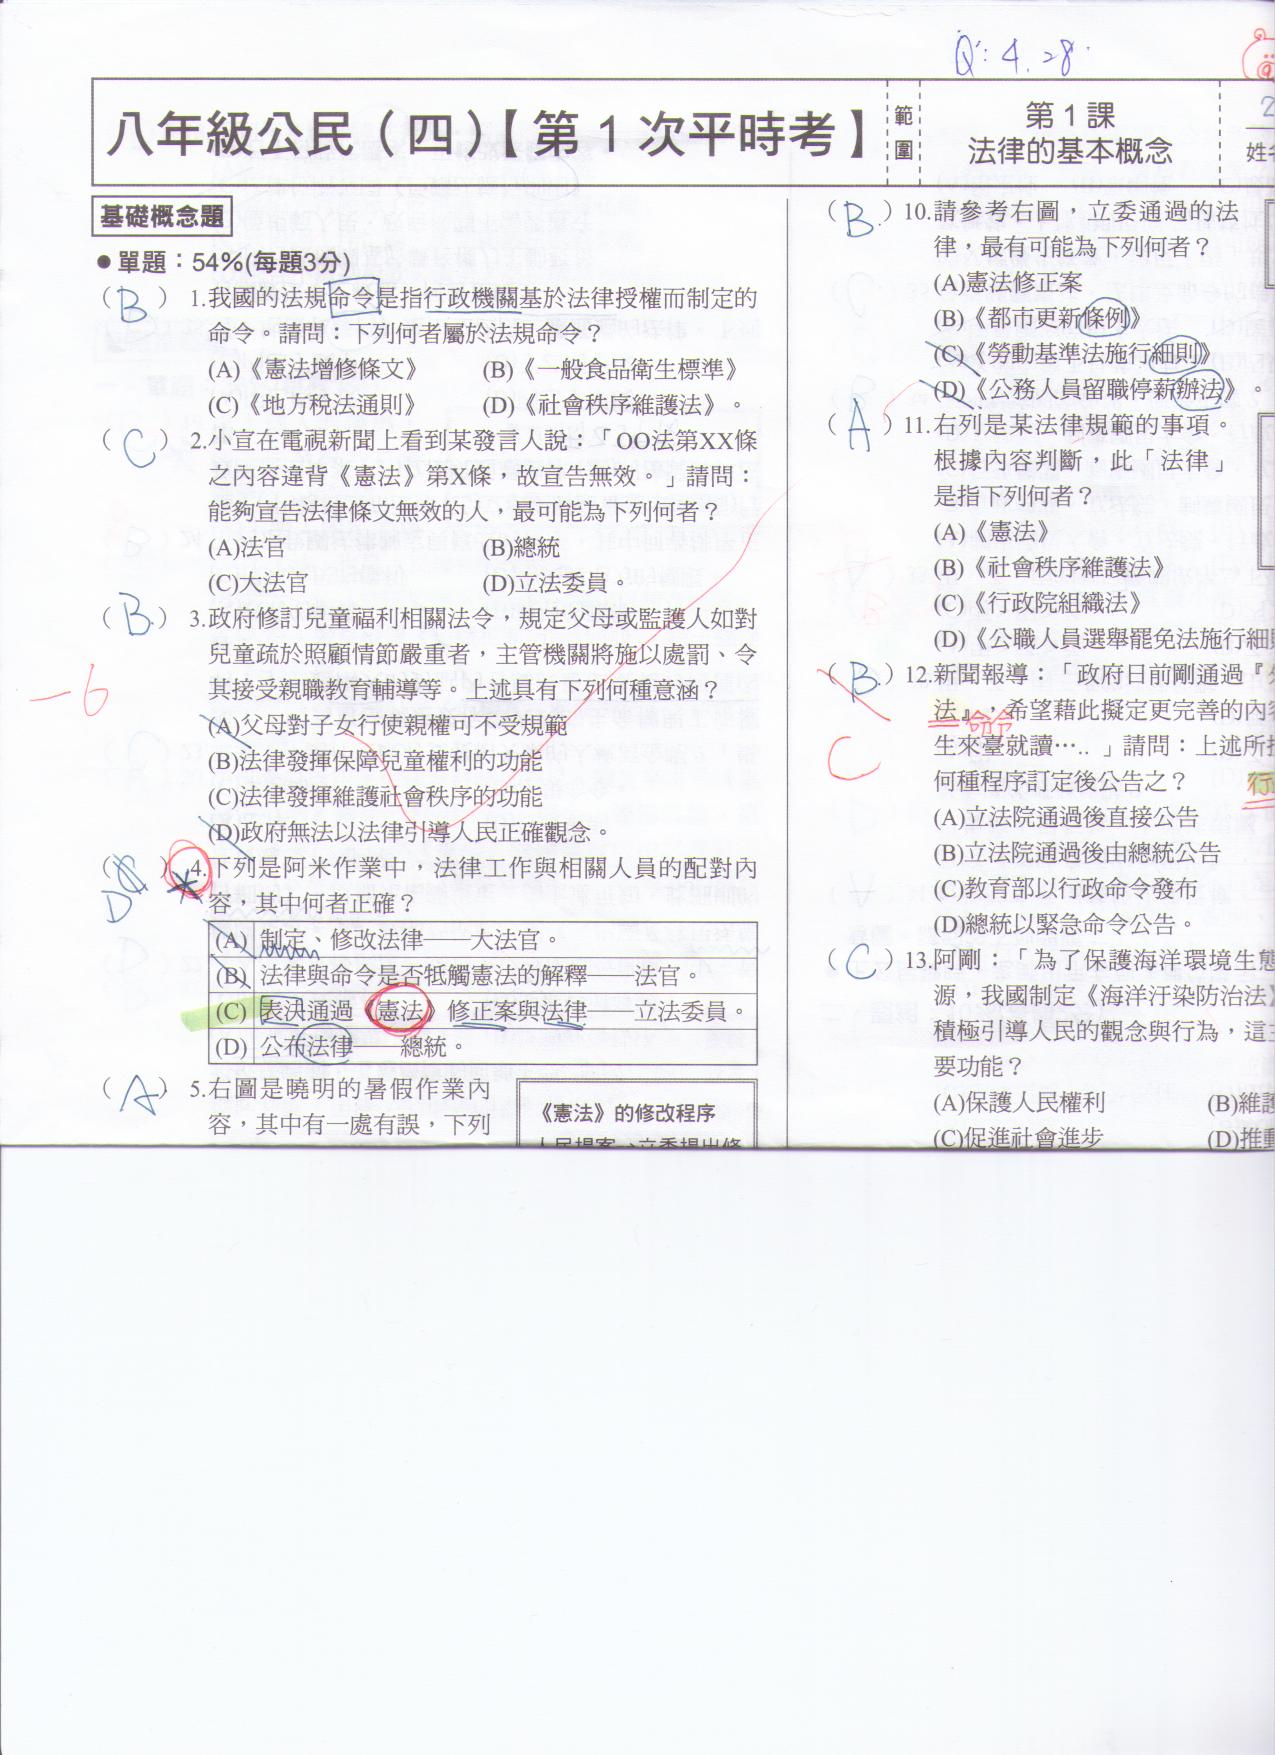 Q: 4.28.
八年級公民（四）【第1次平時考】
範圍
第1課
法律的基本概念
基礎概念題
●單題：54%(每題3分)
（B）1.我國的法規命令是指行政機關基於法律授權而制定的
命令。請問：下列何者屬於法規命令？
(A)《憲法增修條文》 (B)《一般食品衛生標準》
(C)《地方稅法通則》 (D)《社會秩序維護法》。
（C）2.小宣在電視新聞上看到某發言人說：「OO法第XX條
之內容違背《憲法》第X條，故宣告無效。」請問：
能夠宣告法律條文無效的人，最可能為下列何者？
(A)法官 (B)總統
(C)大法官 (D)立法委員。
（B）3.政府修訂兒童福利相關法令，規定父母或監護人如對
兒童疏於照顧情節嚴重者，主管機關將施以處罰、令
其接受親職教育輔導等。上述具有下列何種意涵？
-6
(A)父母對子女行使親權可不受規範
(B)法律發揮保障兒童權利的功能
(C)法律發揮維護社會秩序的功能
(D)政府無法以法律引導人民正確觀念。
（ ）4.下列是阿米作業中，法律工作與相關人員的配對內
D
容，其中何者正確？
(A) 制定、修改法律——大法官。
(B) 法律與命令是否牴觸憲法的解釋——法官。
(C) 表決通過《憲法》修正案與法律——立法委員。
(D) 公布法律——總統。
（A）5.右圖是曉明的暑假作業內
容，其中有一處有誤，下列
《憲法》的修改程序
（B）10.請參考右圖，立委通過的法
律，最有可能為下列何者？
(A)憲法修正案
(B)《都市更新條例》
(C)《勞動基準法施行細則》
(D)《公務人員留職停薪辦法》。
（A）11.右列是某法律規範的事項。
根據內容判斷，此「法律」
是指下列何者？
(A)《憲法》
(B)《社會秩序維護法》
(C)《行政院組織法》
(D)《公職人員選舉罷免法施行細
（B）12.新聞報導：「政府日前剛通過『
法』，希望藉此擬定更完善的內
命令
C
生來臺就讀…‥」請問：上述所
何種程序訂定後公告之？
行
(A)立法院通過後直接公告
(B)立法院通過後由總統公告
(C)教育部以行政命令發布
(D)總統以緊急命令公告。
（C）13.阿剛：「為了保護海洋環境生態
源，我國制定《海洋汙染防治法》
積極引導人民的觀念與行為，這
要功能？
(A)保護人民權利 (B)維
(C)促進社會進步 (D)推